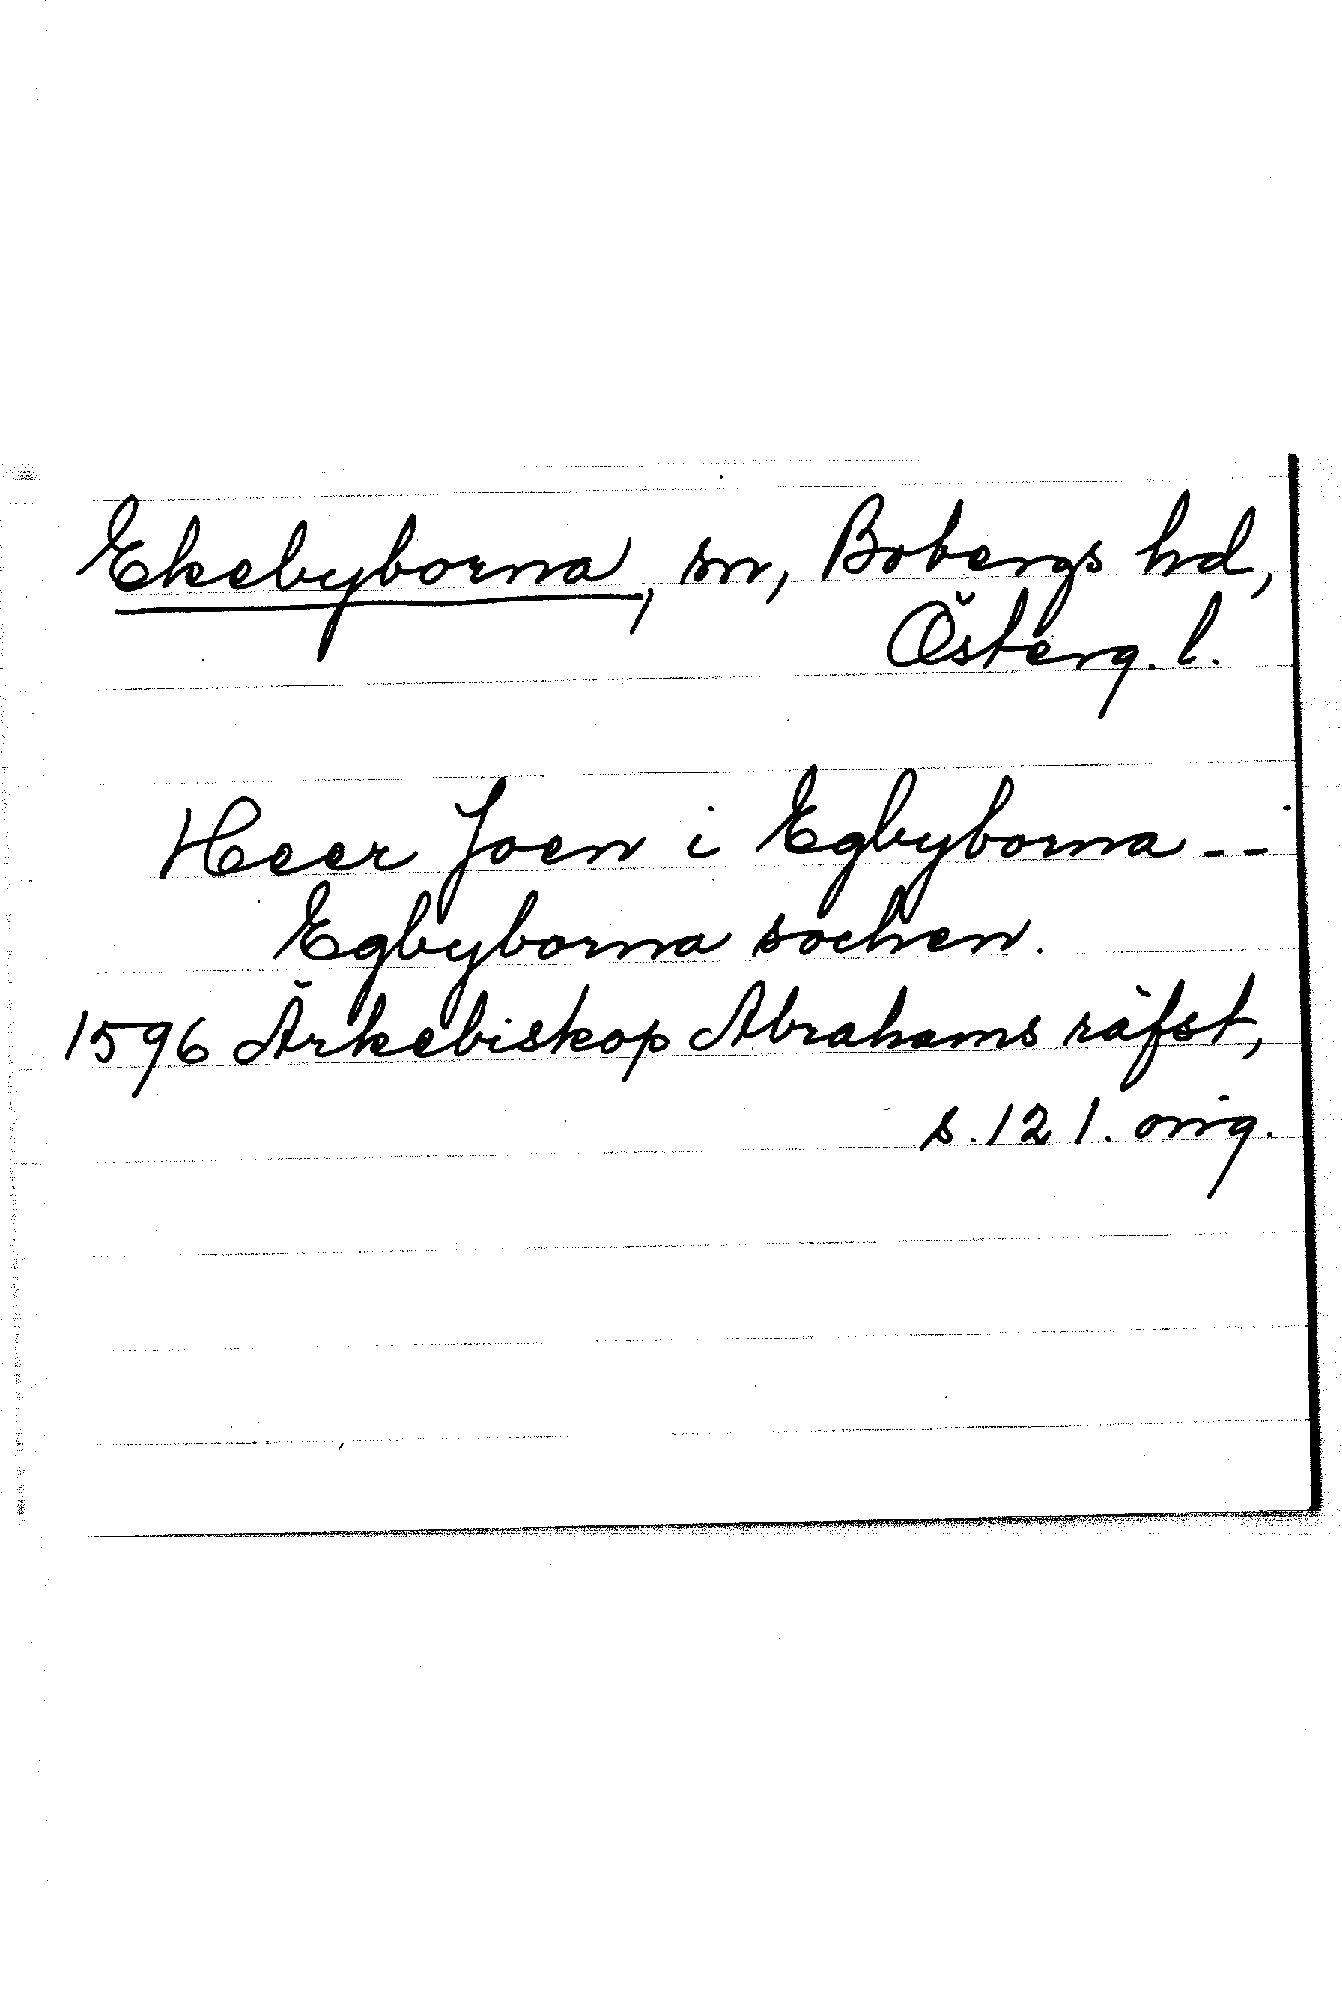 Ekebyborna, sn, Bobergs hd,
Österg. l.
Heer Joen i Egbyborna --
Egbyborna sochen.
1596 Ärkebiskop Abrahams räfst,
s. 121. orig.